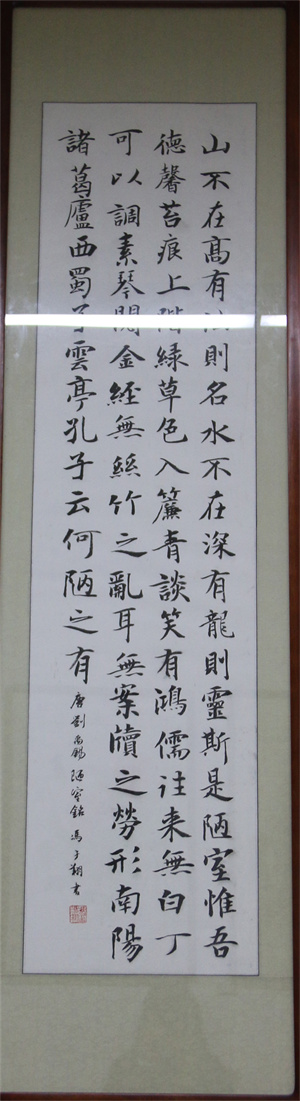 山不在高有仙則名水不在深有龍則靈斯是陋室惟吾
德馨苔痕上階綠草色入簾青談笑有鴻儒往来無白丁
可以調素琴閱金經無絲竹之亂耳無案牘之勞形南陽
諸葛廬西蜀子雲亭孔子云何陋之有
唐劉禹錫陋室銘 馮子翔書